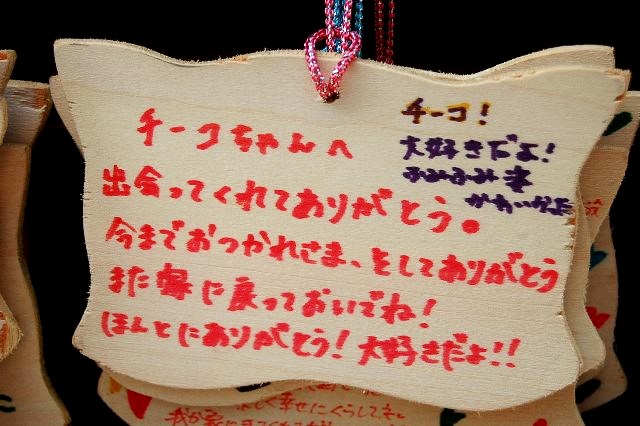 チーコちゃんへ
出会ってくれてありがとう。
今までおつかれさま、そしてありがとう
また家に戻っておいでね！
ほんとにありがとう！大好きだよ!!
チーコ！
大好きだよ！
ふみふみ
かわいかった
幸せにくらしてき。
我が家に